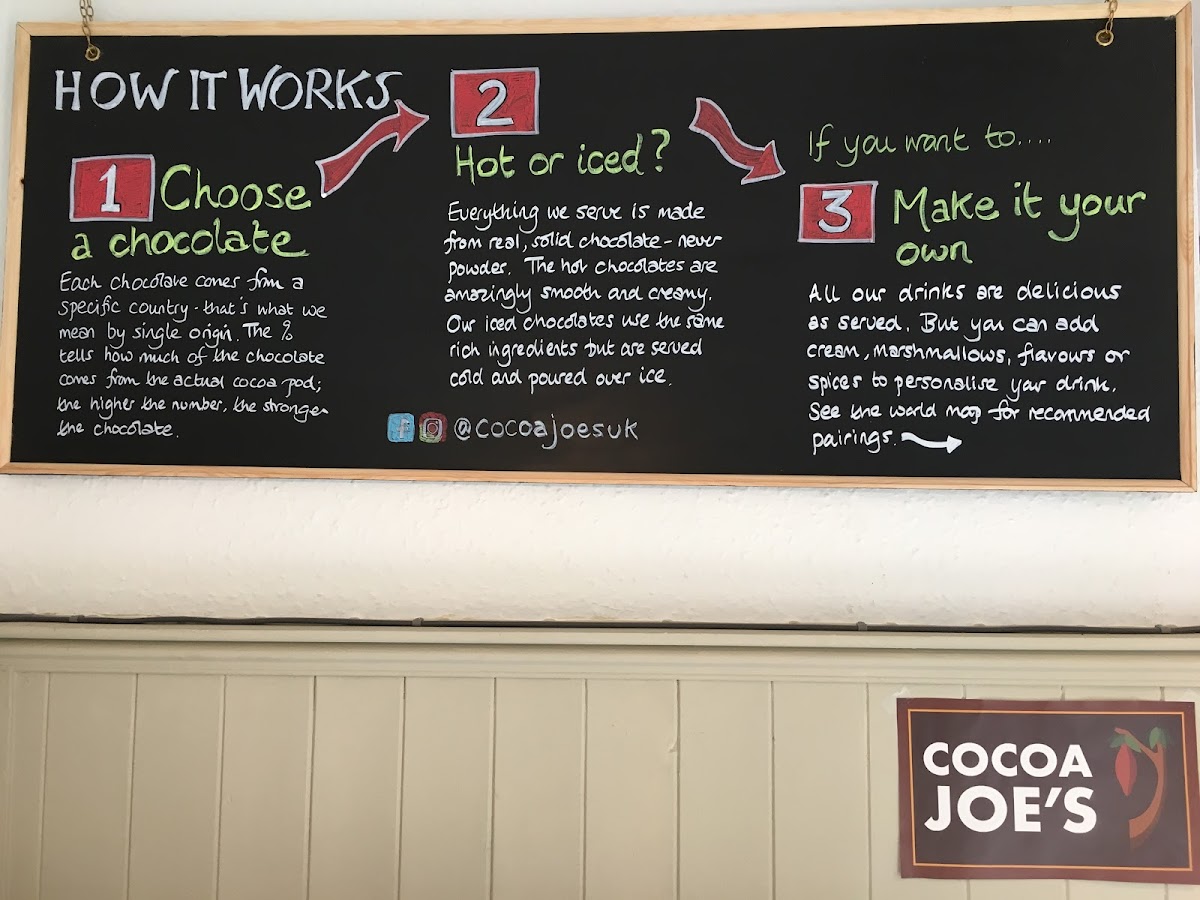 HOW IT WORKS
1 Choose
a chocolate
Each chocolate comes from a
specific country - that's what we
mean by single origin. The %
tells how much of the chocolate
comes from the actual cocoa pod;
the higher the number, the stronger
the chocolate.
2
Hot or iced?
Everything we serve is made
from real, solid chocolate - never
powder. The hot chocolates are
amazingly smooth and creamy.
Our iced chocolates use the same
rich ingredients but are served
cold and poured over ice.
f @cocoajoesuk
If you want to....
3 Make it your
own
All our drinks are delicious
as served. But you can add
cream, marshmallows, flavours or
spices to personalise your drink.
See the world map for recommended
pairings.
COCOA
JOE'S